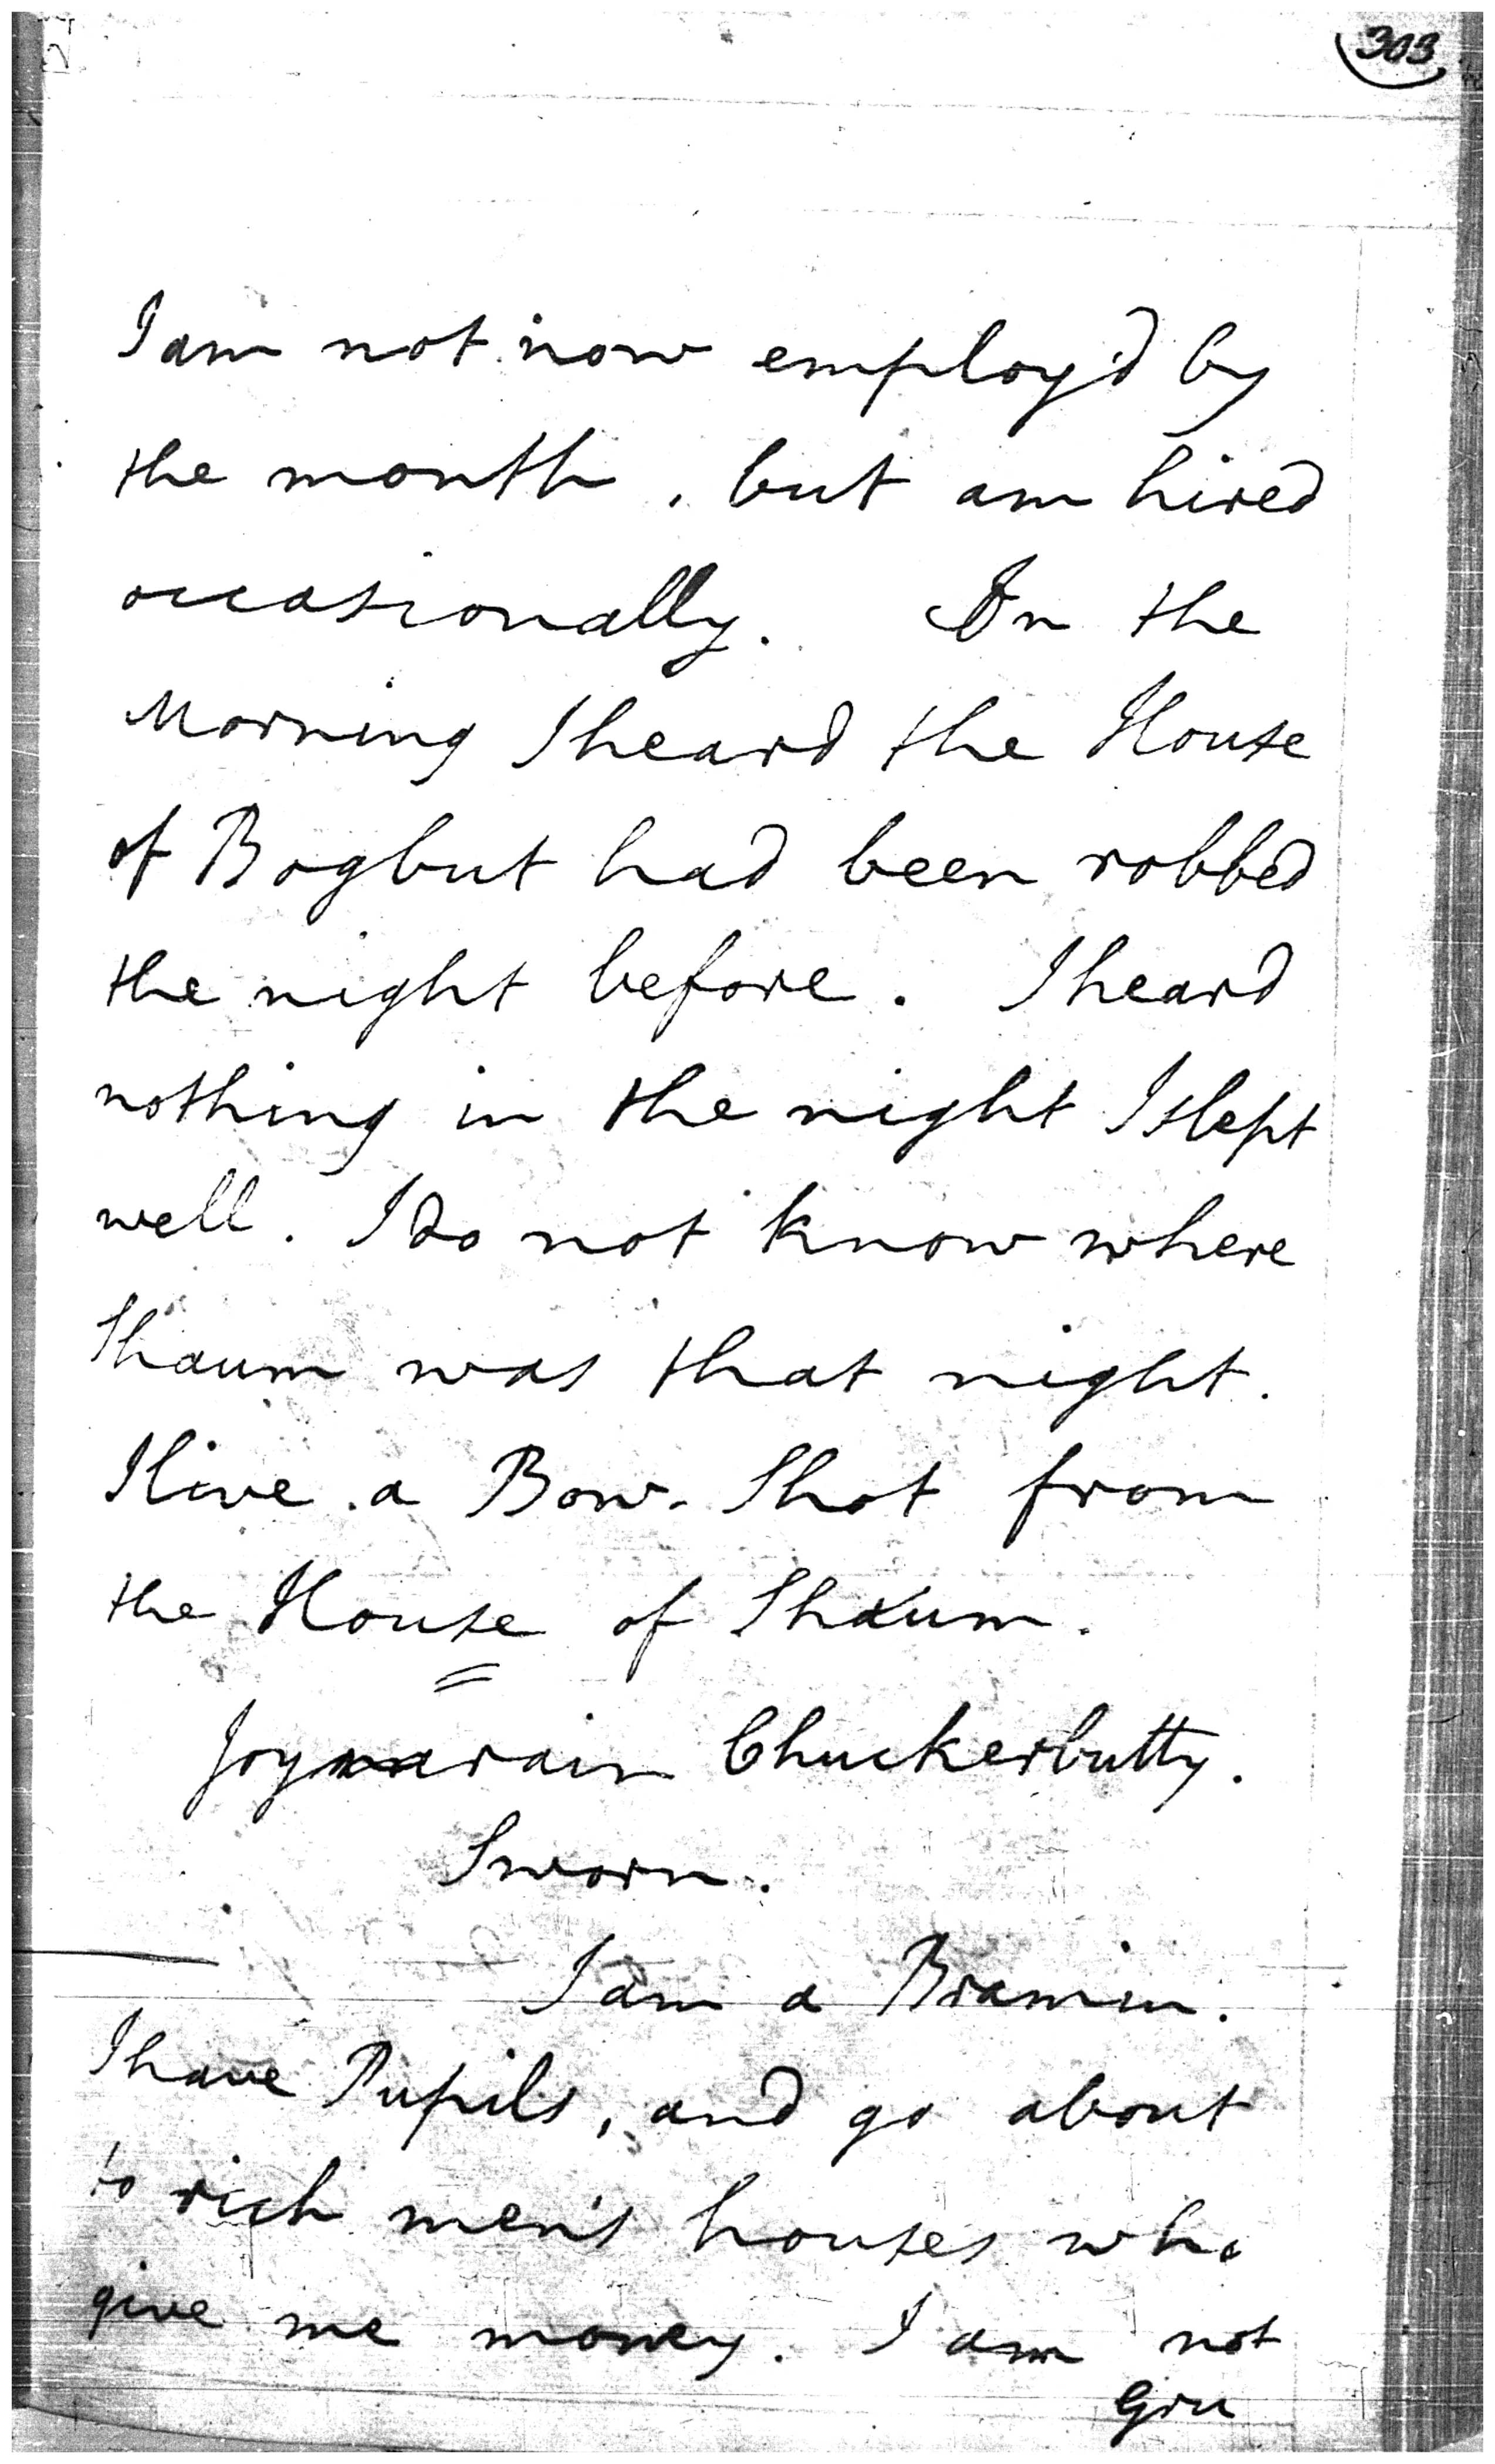 303
I am not now employ'd by
the month, but am hired
occasionally. In the
Morning I heard the House
of Bogbut had been robbed
the night before. I heard
nothing in the night I slept
well. I do not know where
Shaum was that night.
I live a Bow-Shot from
the House of Shaum.
Joynarain Chuckerbutty.
Sworn.
I am a Bramin.
I have Pupils, and go about
to rich men's houses who
give me money. I am not